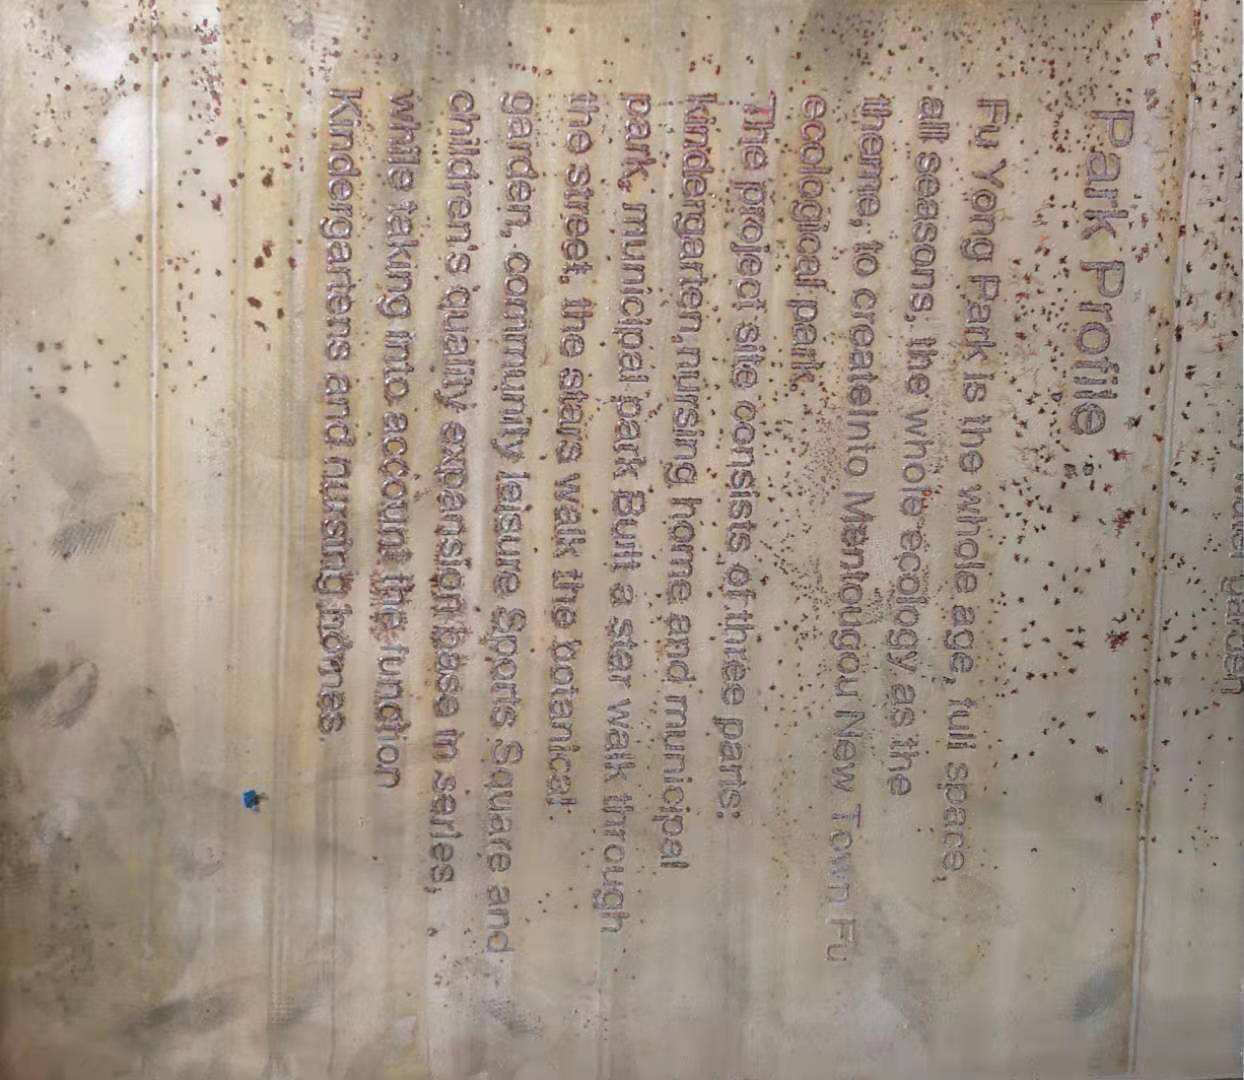 garden
Park Profile
Fu Yong Park is the whole age, full space,
all seasons, the whole ecology as the
theme, to create into Mentougou New Town Fu
ecological park.
The project site consists of three parts:
kindergarten,nursing home and municipal
park, municipal park Built a star walk through
the street, the stars walk the botanical
garden, community leisure Sports Square and
children's quality expansion base in series,
while taking into account the function
Kindergartens and nursing homes.